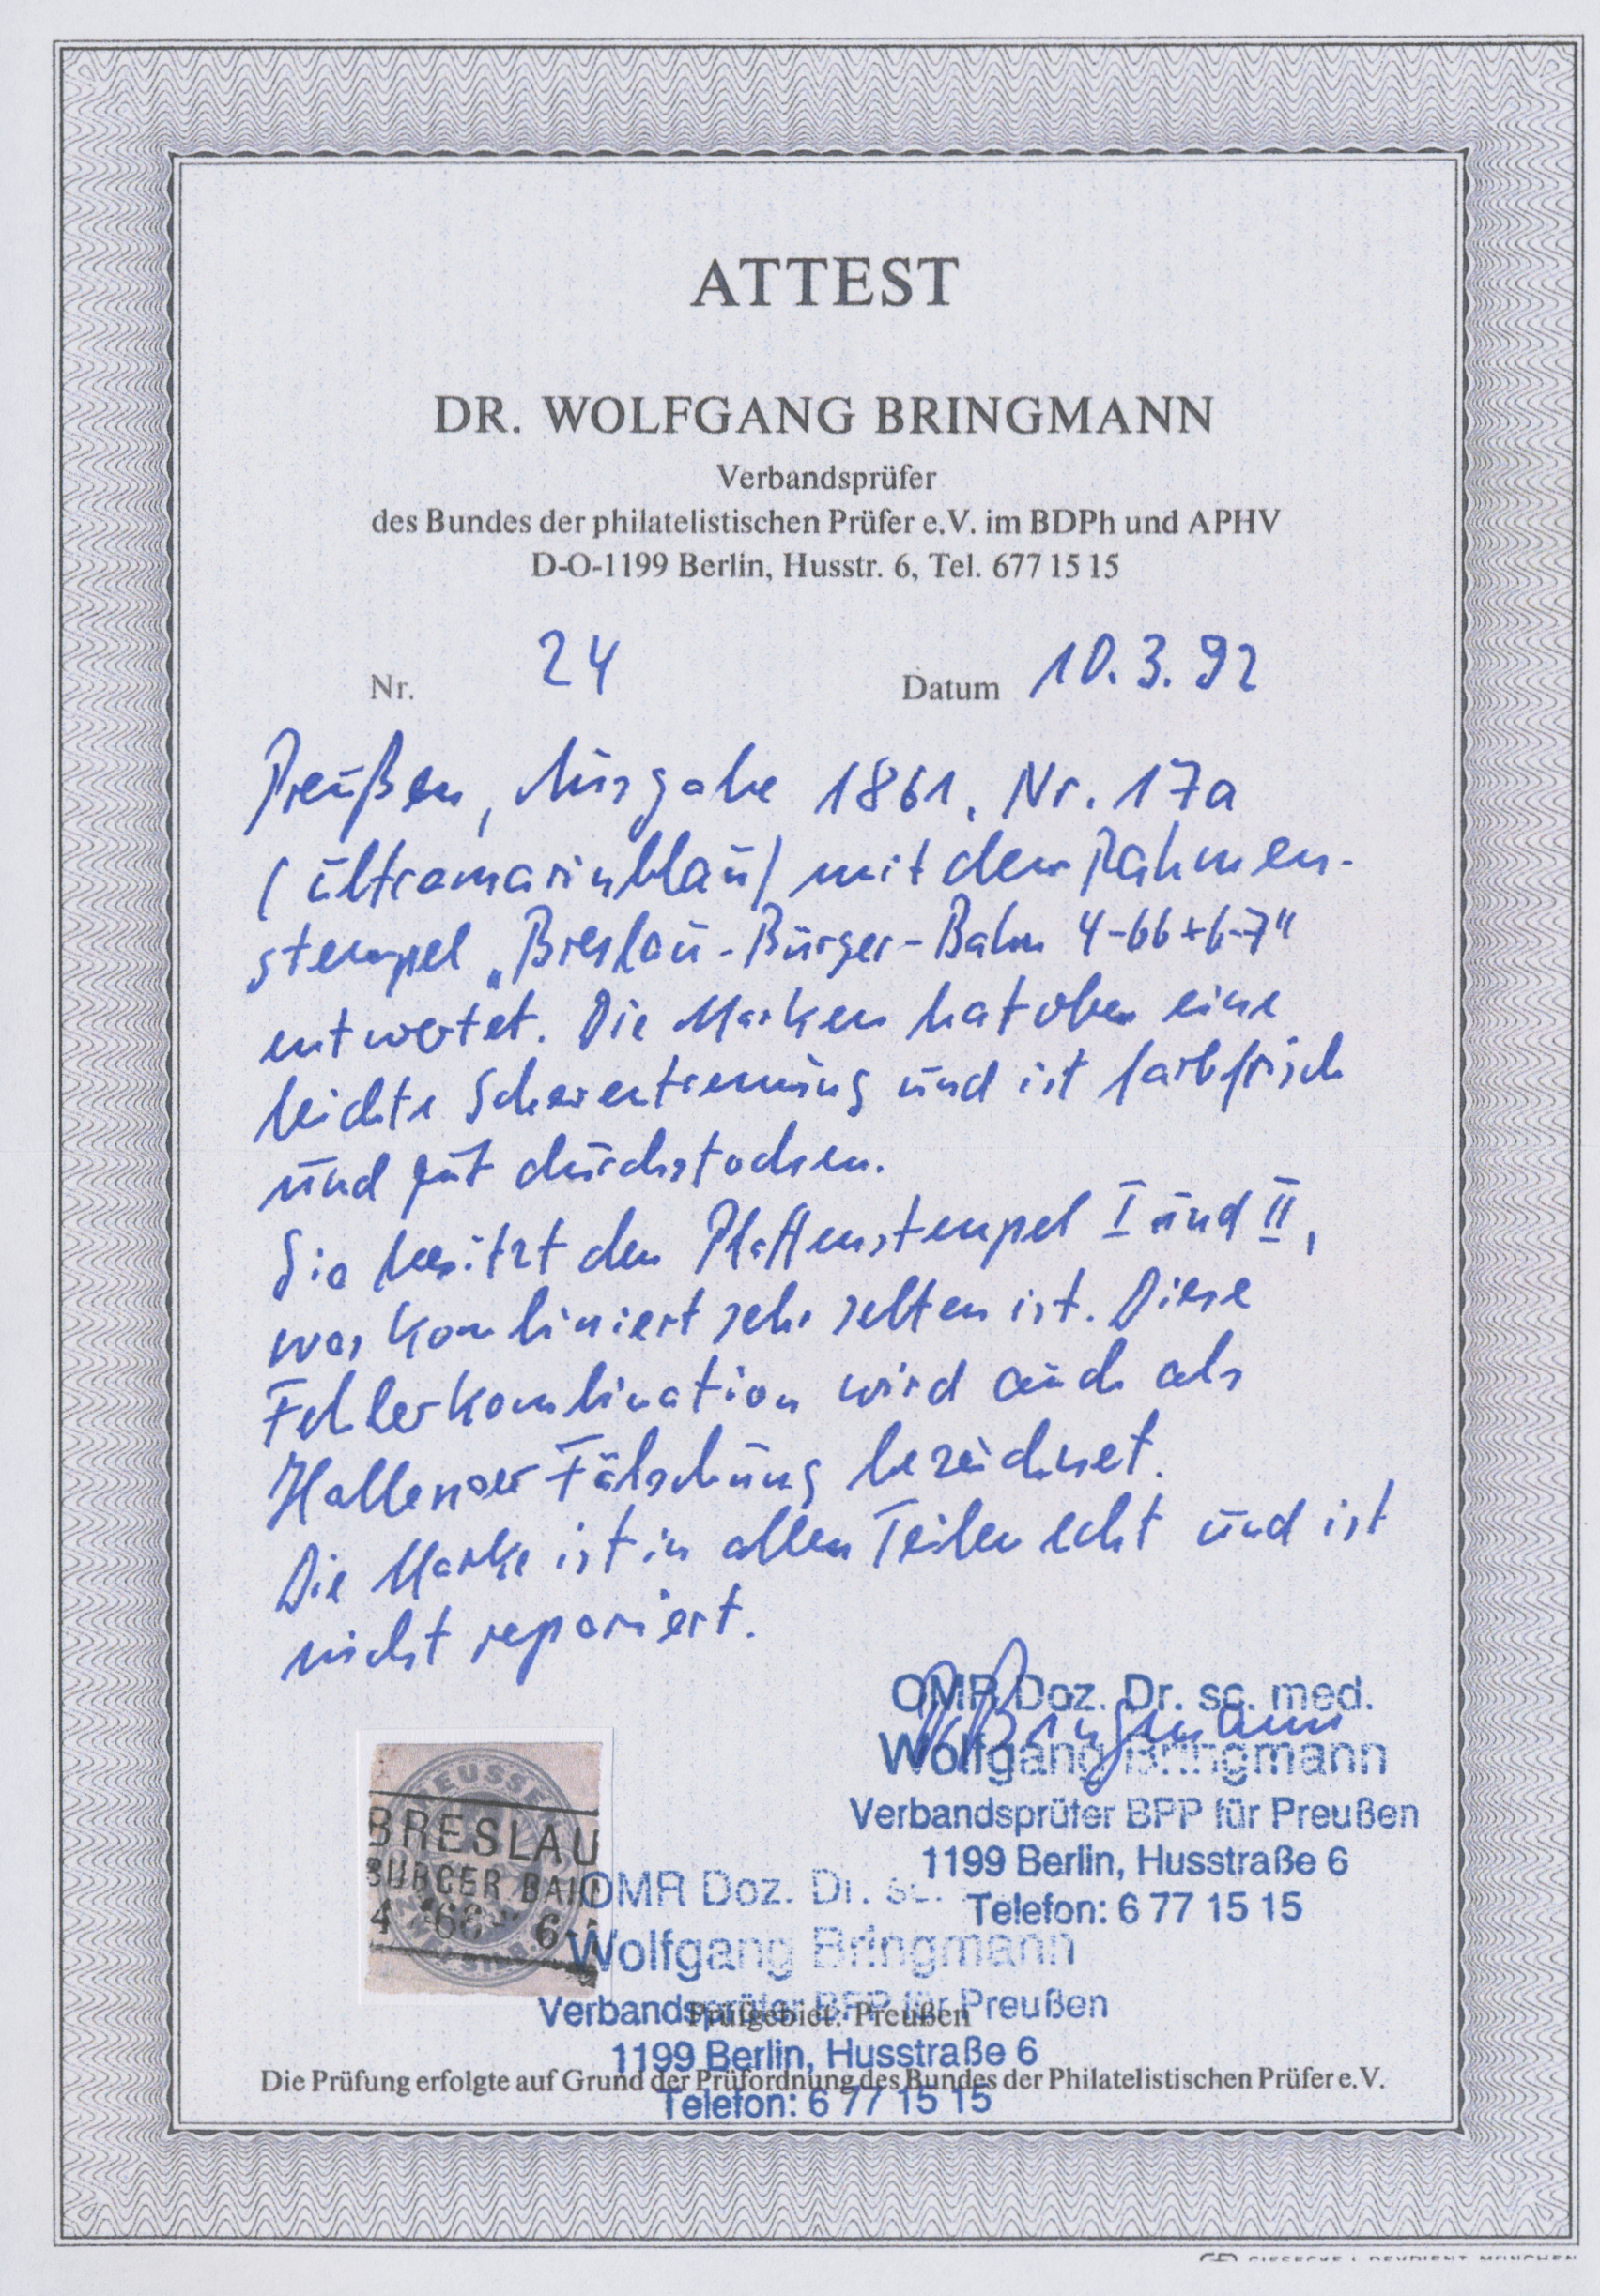 ATTEST
DR. WOLFGANG BRINGMANN
Verbandsprüfer
des Bundes der philatelistischen Prüfer e.V. im BDPh und APHV
D-O-1199 Berlin, Husstr. 6, Tel. 677 15 15
Nr. 24 Datum 10.3.92
Preußen, Ausgabe 1861, Nr. 17a
(ultramarinblau) mit dem Rahmen-
stempel „Breslau-Bürger-Bahn 4-66+6-7"
entwertet. Die Marken hat oben eine
leichte Scherentrennung und ist farbfrisch
und gut durchstochen.
Sie besitzt den Plattenstempel I und II,
was kombiniert sehr selten ist. Diese
Fehlerkombination wird auch als
Fälschung bezeichnet.
Die Marke ist in allen Teilen echt und ist
nicht repariert.
OMR Doz. Dr. sc. med.
Wolfgang Bringmann
Verbandsprüfer BPP für Preußen
1199 Berlin, Husstraße 6
Telefon: 6 77 15 15
BRESLAU
BÜRGER BAH
4 66 6
OMR Doz. Dr. sc.
Wolfgang Bringmann
Verbandsprüfer BPP für Preußen
Prüfgebiet: Preußen
1199 Berlin, Husstraße 6
Die Prüfung erfolgte auf Grund der Prüfordnung des Bundes der Philatelistischen Prüfer e.V.
Telefon: 6 77 15 15
GIESECKE & DEVRIENT MÜNCHEN